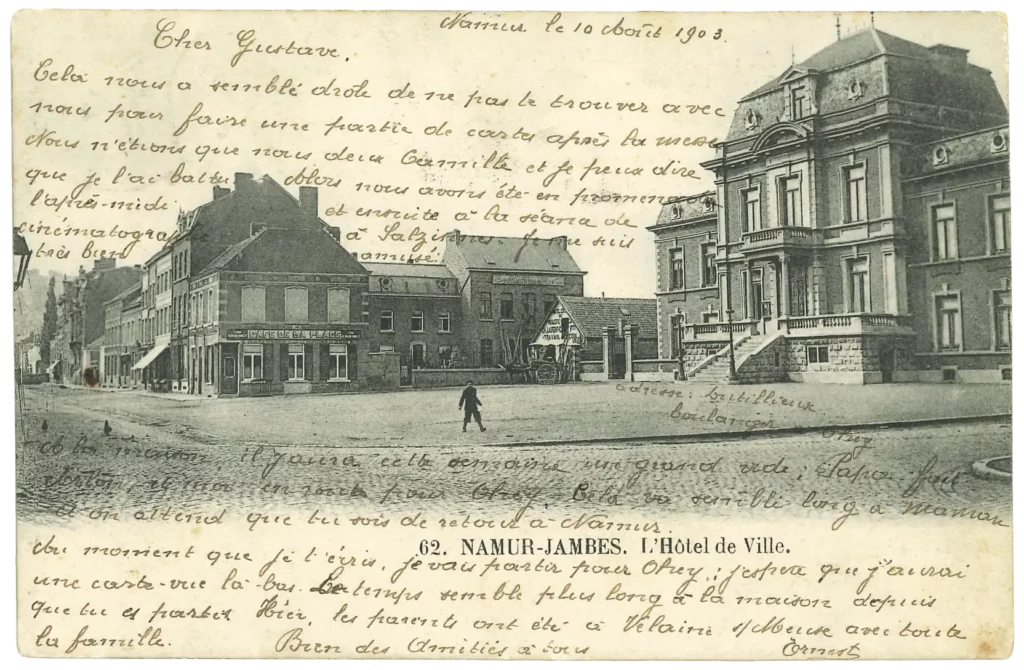 Namur le 10 Août 1903.
Cher Gustave,
Cela nous a semblé drole de ne pas te trouver avec
nous pour faire une partie de cartes après la messe
Nous n'étions que nous deux Camille et je peux dire
que je l'ai battu. Alors nous avons été en promenade
l'après-midi et ensuite à la séance de
cinématographe à Salzinnes. Je me suis
très bien amusé.
CAFE DE LA PLACE
adresse: butillieux
boulanger Ohey
à la maison, il y aura cette semaine un grand vide; Papa fait
et moi en route pour Ohey. Cela va semblé long à maman
et on attend que tu sois de retour à Namur.
62. NAMUR-JAMBES. L'Hôtel de Ville.
Au moment que je t'écris, je vais partir pour Ohey; j'espère que j'aurai
une carte-vue là-bas. Le temps semble plus long à la maison depuis
que tu es partis. Hier, les parents ont été à Velaine s/Meuse avec toute
la famille. Bien des Amitiés à tous Ernest